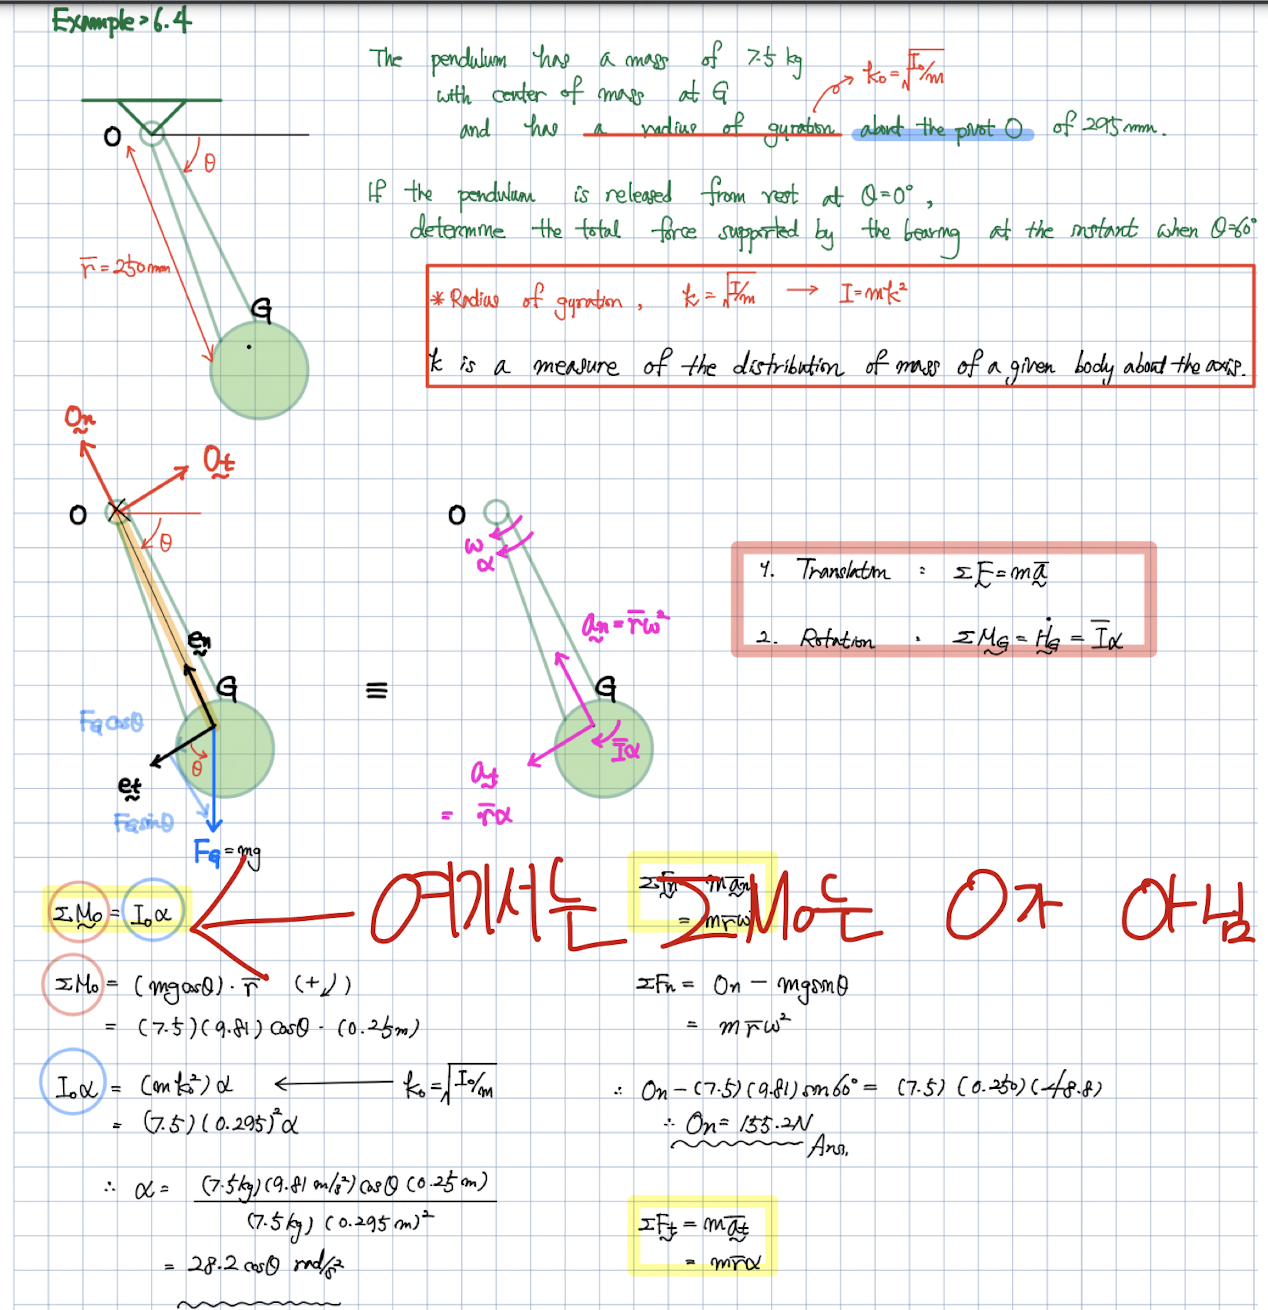 Example > 6.4
The pendulum has a mass of 7.5 kg
with center of mass at G
k₀=√I₀/m
and has a radius of gyration about the pivot O of 295mm.
O
θ
If the pendulum is released from rest at θ=0°,
determine the total force supported by the bearing at the instant when θ=60°
r̅=250mm
G
* Radius of gyration, k=√I/m → I=mk²
k is a measure of the distribution of mass of a given body about the axis.
On
Ot
O
θ
O
ω
α
1. Translation : ΣF=ma̅
2. Rotation : ΣM_G = Ḣ_G = I̅α
en
an=r̅ω²
G
≡
G
F_G cosθ
θ
I̅α
et
at
= r̅α
F_G sinθ
F_G=mg
ΣFn = man
= mr̅ω²
ΣM₀ = I₀α
여기서는 ΣM₀는 0가 아님
ΣM₀ = (mgcosθ)·r̅ (+↓)
= (7.5)(9.81)cosθ·(0.25m)
ΣFn = On - mgsinθ
= mr̅ω²
I₀α = (mk₀²)α ← k₀=√I₀/m
= (7.5)(0.295)²α
∴ On-(7.5)(9.81)sin60° = (7.5)(0.250)(48.8)
∴ On= 155.2N
Ans.
∴ α = (7.5kg)(9.81 m/s²)cosθ(0.25m)
(7.5kg)(0.295m)²
= 28.2cosθ rad/s²
ΣFt = mat
= mr̅α